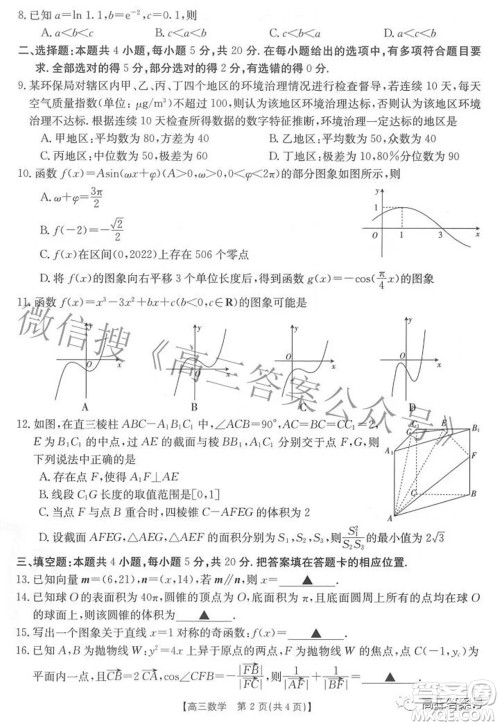 8. 已知 a=ln 1.1, b=e⁻², c=0.1, 则
A. a<b<c B. a<c<b C. c<a<b D. a<c<b
二、选择题:本题共 4 小题,每小题 5 分,共 20 分. 在每小题给出的选项中,有多项符合题目要
求. 全部选对的得 5 分,部分选对的得 2 分,有选错的得 0 分.
9. 某环保局对辖区内甲、乙、丙、丁四个地区的环境治理情况进行检查督导,若连续 10 天,每天
空气质量指数(单位: μg/m³)不超过 100,则认为该地区环境治理达标,否则认为该地区环境
治理不达标. 根据连续 10 天检查所得数据的数字特征推断,环境治理一定达标的地区是
A. 甲地区:平均数为 80,方差为 40 B. 乙地区:平均数为 50,众数为 40
C. 丙地区:中位数为 50,极差为 60 D. 丁地区:极差为 10,80%分位数为 90
10. 函数 f(x)=Asin(ωx+φ)(A>0,ω>0,0<φ<2π)的部分图象如图所示,则
A. ω+φ=3π/2
B. f(-2)=-√2/2
C. f(x)在区间(0,2022)上存在 506 个零点
D. 将 f(x)的图象向右平移 3 个单位长度后,得到函数 g(x)=-cos(π/4 x)的图象
y
1
O 1 3 x
11. 函数 f(x)=x³-3x²+bx+c(b<0,c∈R)的图象可能是
y y y y
O x O x O x x
A B C D
12. 如图,在直三棱柱 ABC-A₁B₁C₁ 中,∠ACB=90°,AC=BC=CC₁=2,
E 为 B₁C₁ 的中点,过 AE 的截面与棱 BB₁、A₁C₁分别交于点 F,G,则
下列说法中正确的是
A. 存在点 F,使得 A₁F⊥AE
B. 线段 C₁G 长度的取值范围是[0,1]
C. 当点 F 与点 B 重合时,四棱锥 C-AFEG 的体积为 2
D. 设截面 AFEG,△AEG,△AEF 的面积分别为 S₁,S₂,S₃,则 S₁²/S₂S₃ 的最小值为 2√3
C₁ E B₁
A₁ G
F
C B
A
三、填空题:本题共 4 小题,每小题 5 分,共 20 分. 把答案填在答题卡的相应位置.
13. 已知向量 m=(6,21),n=(x,14),若 m∥n,则 x=▲.
14. 已知球 O 的表面积为 40π,圆锥的顶点为 O,底面积为 π,且底面圆周上所有的点均在球 O
的球面上,则该圆锥的体积为▲.
15. 写出一个图象关于直线 x=1 对称的奇函数: f(x)=▲.
16. 已知 A,B 为抛物线 W:y²=4x 上异于原点的两点,F 为抛物线 W 的焦点,点 C(-1,y꜀)为
平面内一点,且CB=2CA,cos∠CFB=-|FB|/|FC|,则直线 AB 的斜率为▲.
【高三数学 第 2 页(共 4 页)】
微信搜《高三答案公众号》